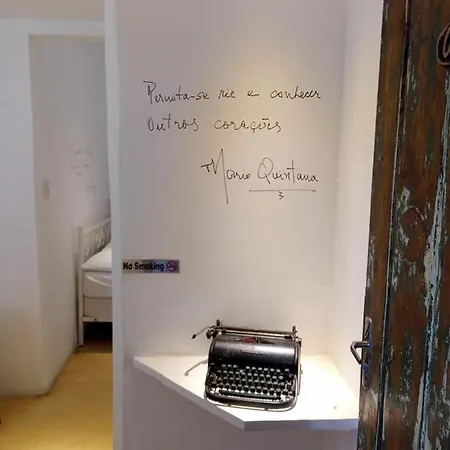 Permita-se rir e conhecer
outros corações
Mario Quintana
No Smoking